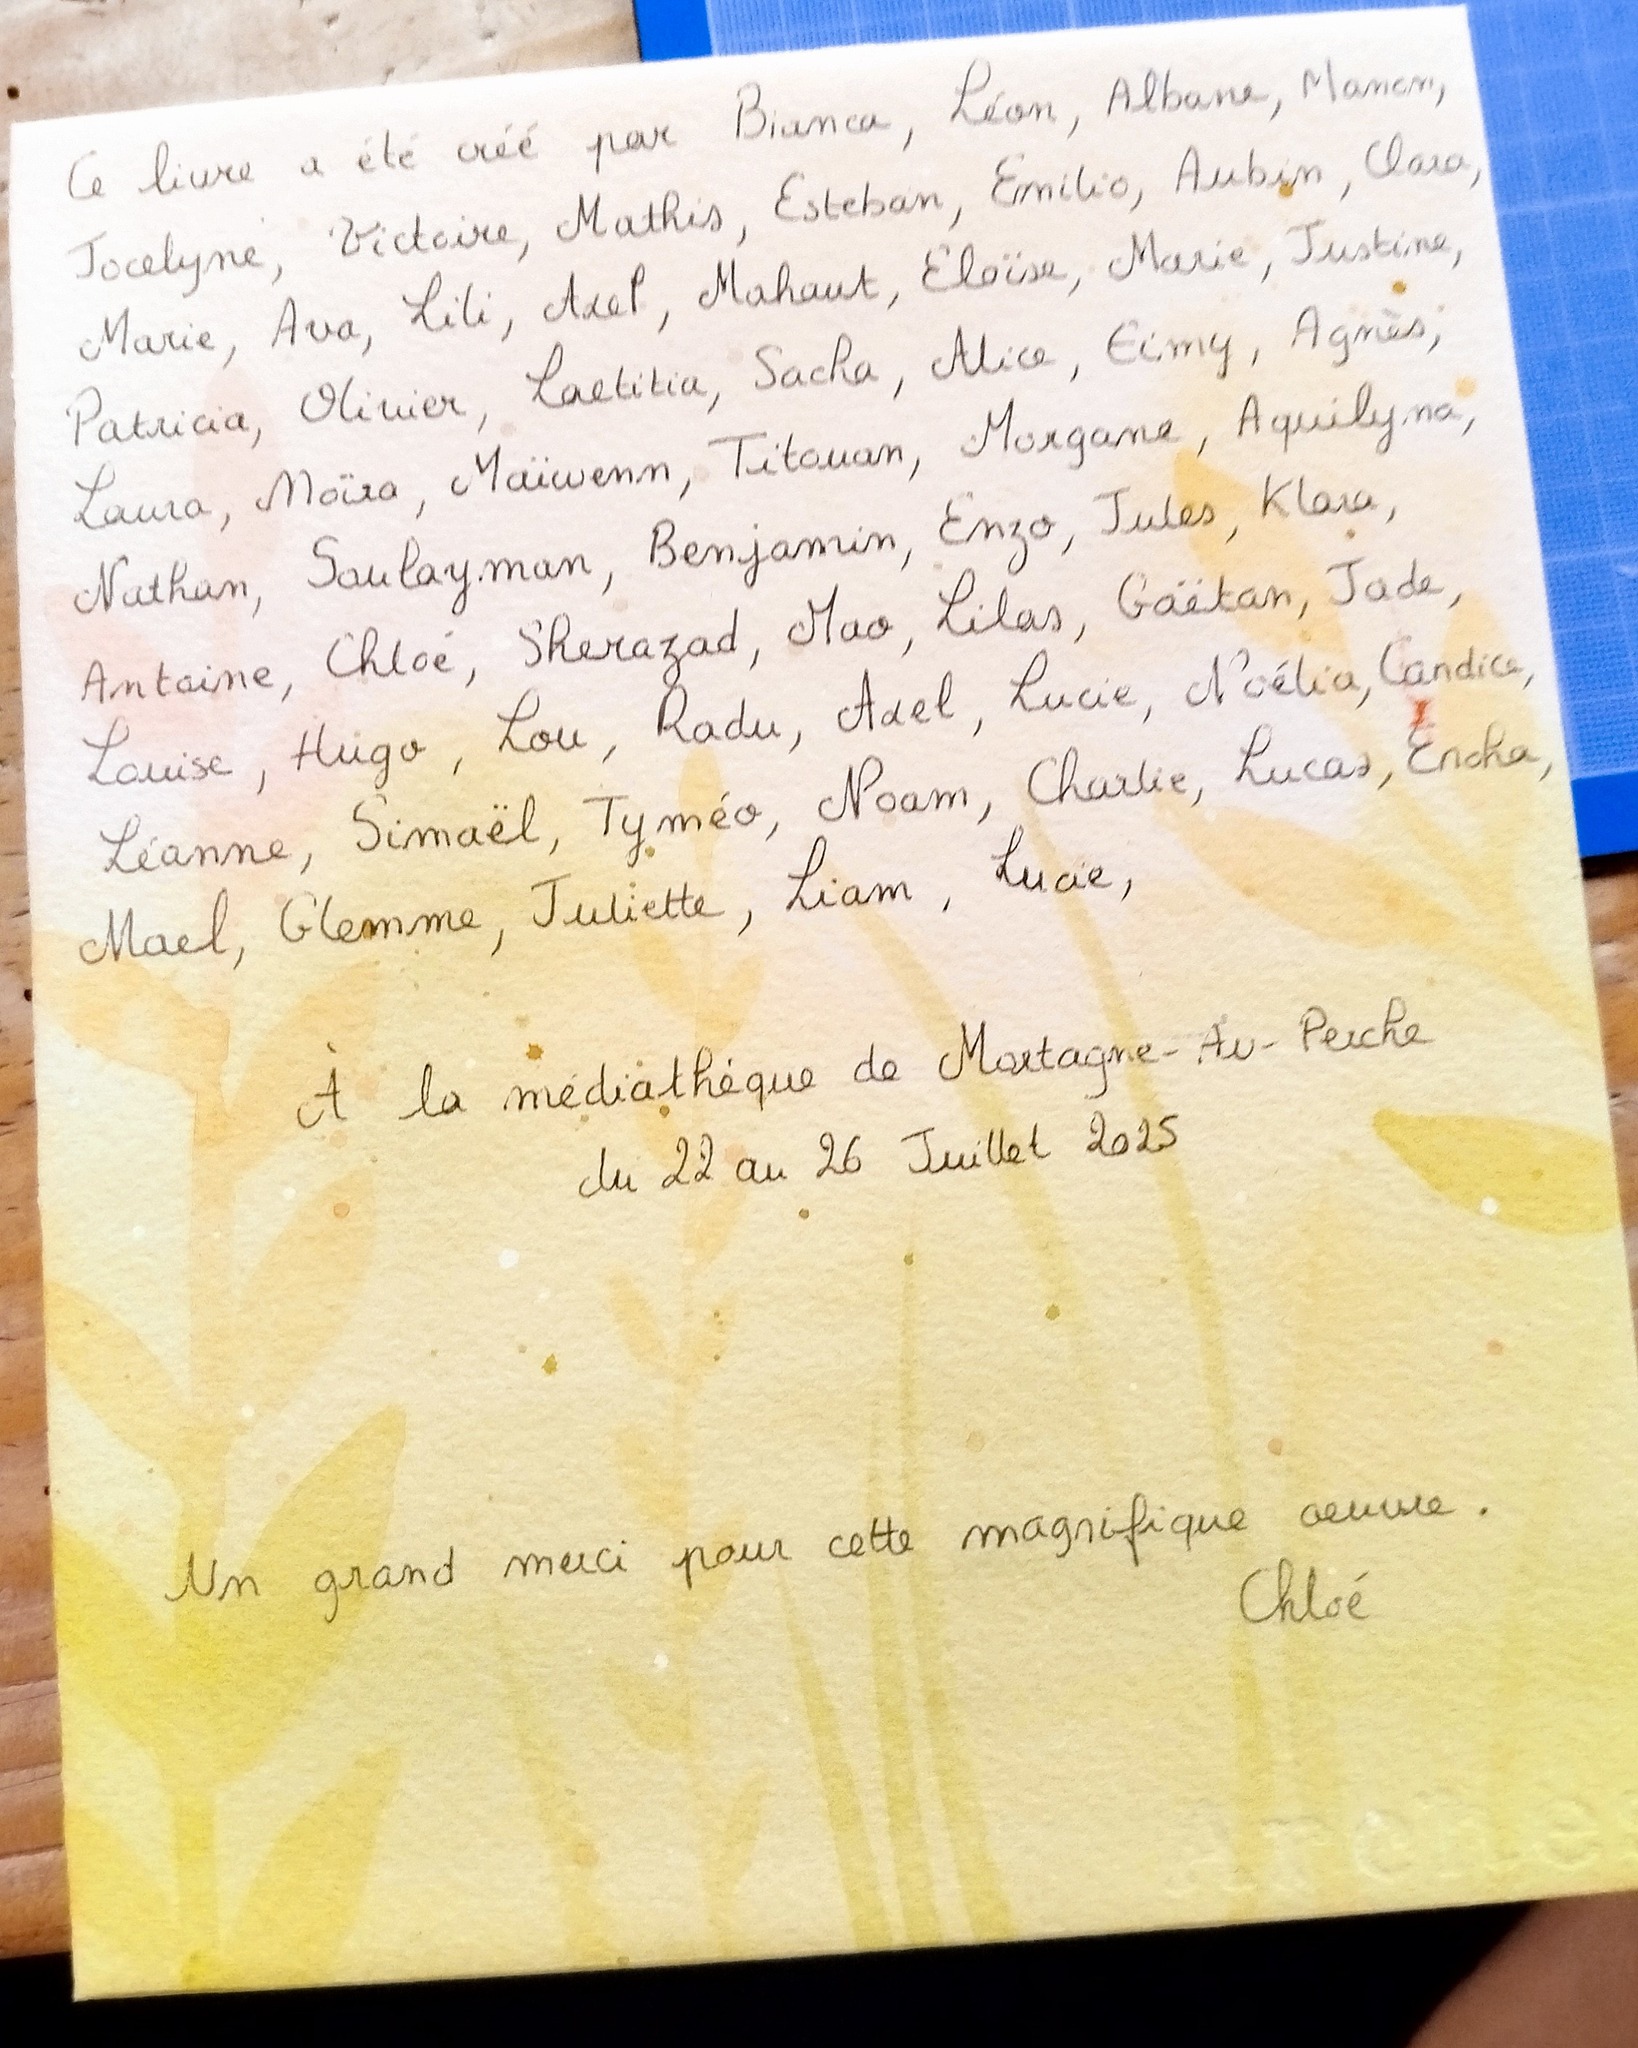 Ce livre a été créé par Bianca, Léon, Albane, Manon,
Jocelyne, Victoire, Mathis, Esteban, Emilio, Aubin, Clara,
Marie, Ava, Lili, Axel, Mahaut, Eloïse, Marie, Justine,
Patricia, Olivier, Laetitia, Sacha, Alice, Eimy, Agnès,
Laura, Moïra, Maïwenn, Titouan, Morgane, Aquilyna,
Nathan, Soulayman, Benjamin, Enzo, Jules, Klara,
Antoine, Chloé, Sherazad, Mao, Lilas, Gaëtan, Jade,
Louise, Hugo, Lou, Radu, Axel, Lucie, Noélia, Candice,
Léanne, Simaël, Tyméo, Noam, Charlie, Lucas,
Mael, Juliette, Liam, Lucie,
À la médiathèque de Mortagne-Au-Perche
du 22 au 26 Juillet 2025
Un grand merci pour cette magnifique oeuvre.
Chloé